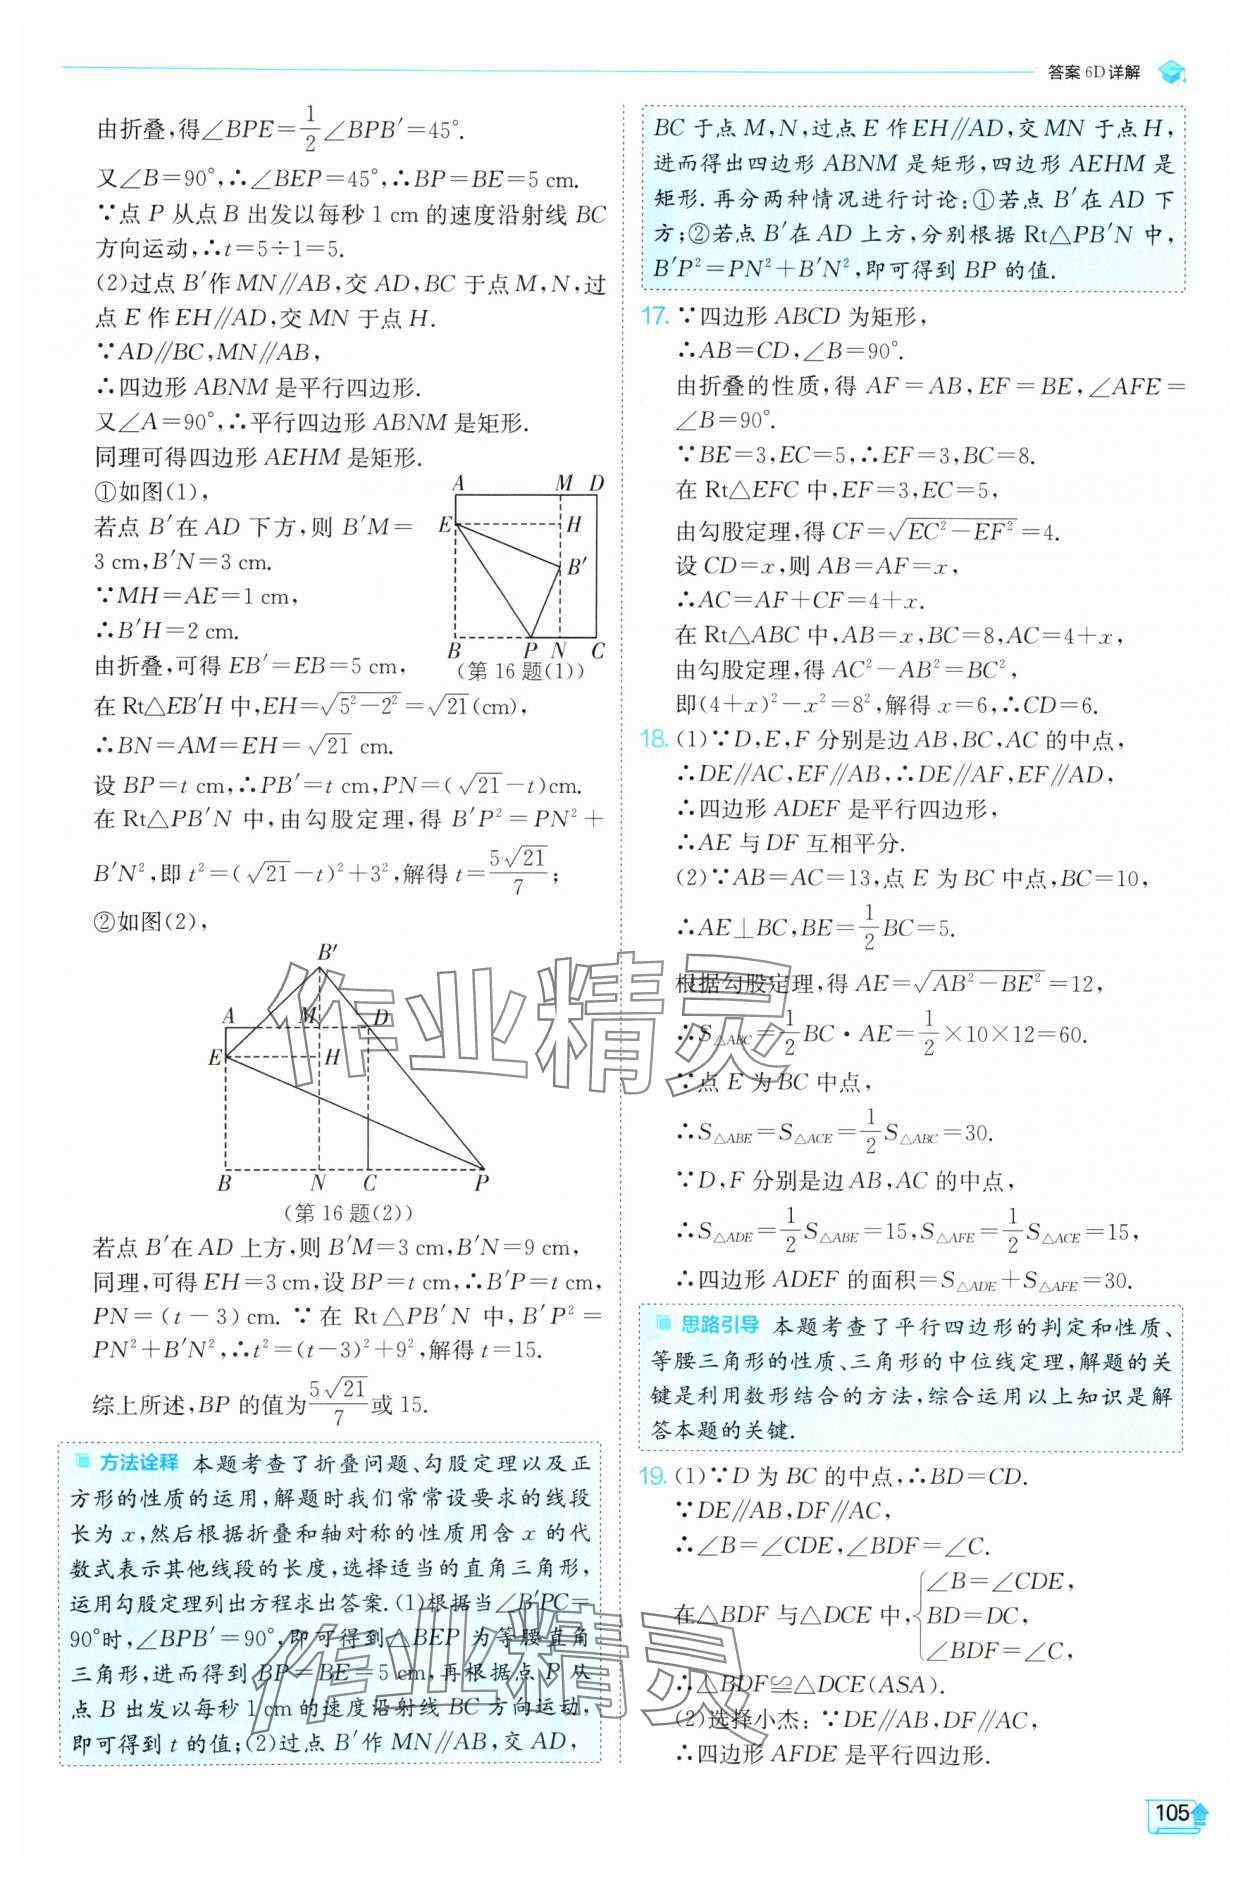 答案 6D详解
由折叠,得∠BPE=1/2∠BPB′=45°.
又∠B=90°,∴∠BEP=45°,∴BP=BE=5 cm.
∵点 P 从点 B 出发以每秒 1 cm 的速度沿射线 BC
方向运动,∴t=5÷1=5.
(2)过点 B′作 MN∥AB,交 AD,BC 于点 M,N,过
点 E 作 EH∥AD,交 MN 于点 H.
∵AD∥BC,MN∥AB,
∴四边形 ABNM 是平行四边形.
又∠A=90°,∴平行四边形 ABNM 是矩形.
同理可得四边形 AEHM 是矩形.
①如图(1),
若点 B′在 AD 下方,则 B′M=
3 cm,B′N=3 cm.
∵MH=AE=1 cm,
∴B′H=2 cm.
由折叠,可得 EB′=EB=5 cm,
A M D
E H
B′
B P N C
(第 16 题(1))
在 Rt△EB′H 中,EH=√(5²−2²)=√21(cm),
∴BN=AM=EH=√21 cm.
设 BP=t cm,∴PB′=t cm,PN=(√21−t)cm.
在 Rt△PB′N 中,由勾股定理,得 B′P²=PN²+
B′N²,即 t²=(√21−t)²+3²,解得 t=5√21/7;
②如图(2),
B′
A M D
E H
B N C P
(第 16 题(2))
若点 B′在 AD 上方,则 B′M=3 cm,B′N=9 cm,
同理,可得 EH=3 cm,设 BP=t cm,∴B′P=t cm,
PN=(t−3) cm. ∵在 Rt△PB′N 中,B′P²=
PN²+B′N²,∴t²=(t−3)²+9²,解得 t=15.
综上所述,BP 的值为5√21/7或 15.
方法诠释 本题考查了折叠问题、勾股定理以及正
方形的性质的运用,解题时我们常常设要求的线段
长为 x,然后根据折叠和轴对称的性质用含 x 的代
数式表示其他线段的长度,选择适当的直角三角形,
运用勾股定理列出方程求出答案.(1)根据当∠B′PC=
90°时,∠BPB′=90°,即可得到△BEP 为等腰直角
三角形,进而得到 BP=BE=5 cm,再根据点 P 从
点 B 出发以每秒 1 cm 的速度沿射线 BC 方向运动,
即可得到 t 的值;(2)过点 B′作 MN∥AB,交 AD,
BC 于点 M,N,过点 E 作 EH∥AD,交 MN 于点 H,
进而得出四边形 ABNM 是矩形,四边形 AEHM 是
矩形.再分两种情况进行讨论:①若点 B′在 AD 下
方;②若点 B′在 AD 上方,分别根据 Rt△PB′N 中,
B′P²=PN²+B′N²,即可得到 BP 的值.
17. ∵四边形 ABCD 为矩形,
∴AB=CD,∠B=90°.
由折叠的性质,得 AF=AB,EF=BE,∠AFE=
∠B=90°.
∵BE=3,EC=5,∴EF=3,BC=8.
在 Rt△EFC 中,EF=3,EC=5,
由勾股定理,得 CF=√(EC²−EF²)=4.
设 CD=x,则 AB=AF=x,
∴AC=AF+CF=4+x.
在 Rt△ABC 中,AB=x,BC=8,AC=4+x,
由勾股定理,得 AC²−AB²=BC²,
即(4+x)²−x²=8²,解得 x=6,∴CD=6.
18. (1)∵D,E,F 分别是边 AB,BC,AC 的中点,
∴DE∥AC,EF∥AB,∴DE∥AF,EF∥AD,
∴四边形 ADEF 是平行四边形,
∴AE 与 DF 互相平分.
(2)∵AB=AC=13,点 E 为 BC 中点,BC=10,
∴AE⊥BC,BE=1/2BC=5.
根据勾股定理,得 AE=√(AB²−BE²)=12,
∴S△ABC=1/2BC·AE=1/2×10×12=60.
∵点 E 为 BC 中点,
∴S△ABE=S△ACE=1/2S△ABC=30.
∵D,F 分别是边 AB,AC 的中点,
∴S△ADE=1/2S△ABE=15,S△AFE=1/2S△ACE=15,
∴四边形 ADEF 的面积=S△ADE+S△AFE=30.
思路引导 本题考查了平行四边形的判定和性质、
等腰三角形的性质、三角形的中位线定理,解题的关
键是利用数形结合的方法,综合运用以上知识是解
答本题的关键.
19. (1)∵D 为 BC 的中点,∴BD=CD.
∵DE∥AB,DF∥AC,
∴∠B=∠CDE,∠BDF=∠C.
在△BDF 与△DCE 中,{∠B=∠CDE,
BD=DC,
∠BDF=∠C,
∴△BDF≌△DCE(ASA).
(2)选择小杰:∵DE∥AB,DF∥AC,
∴四边形 AFDE 是平行四边形.
105
作业精灵
作业精灵